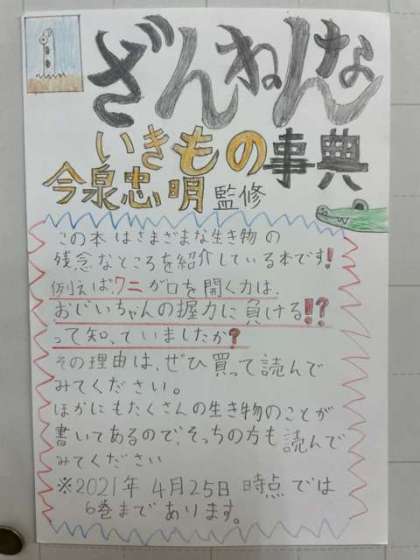 ざんねんな
いきもの事典
今泉忠明 監修
この本はさまざまな生き物の
残念なところを紹介している本です!
例えばワニが口を開く力は、
おじいちゃんの握力に負ける!?
って知っていましたか?
その理由は、ぜひ買って読んで
みてください。
ほかにもたくさんの生き物のことが
書いてあるので、そっちの方も読んで
みてください
※2021年4月25日時点では
6巻まであります。